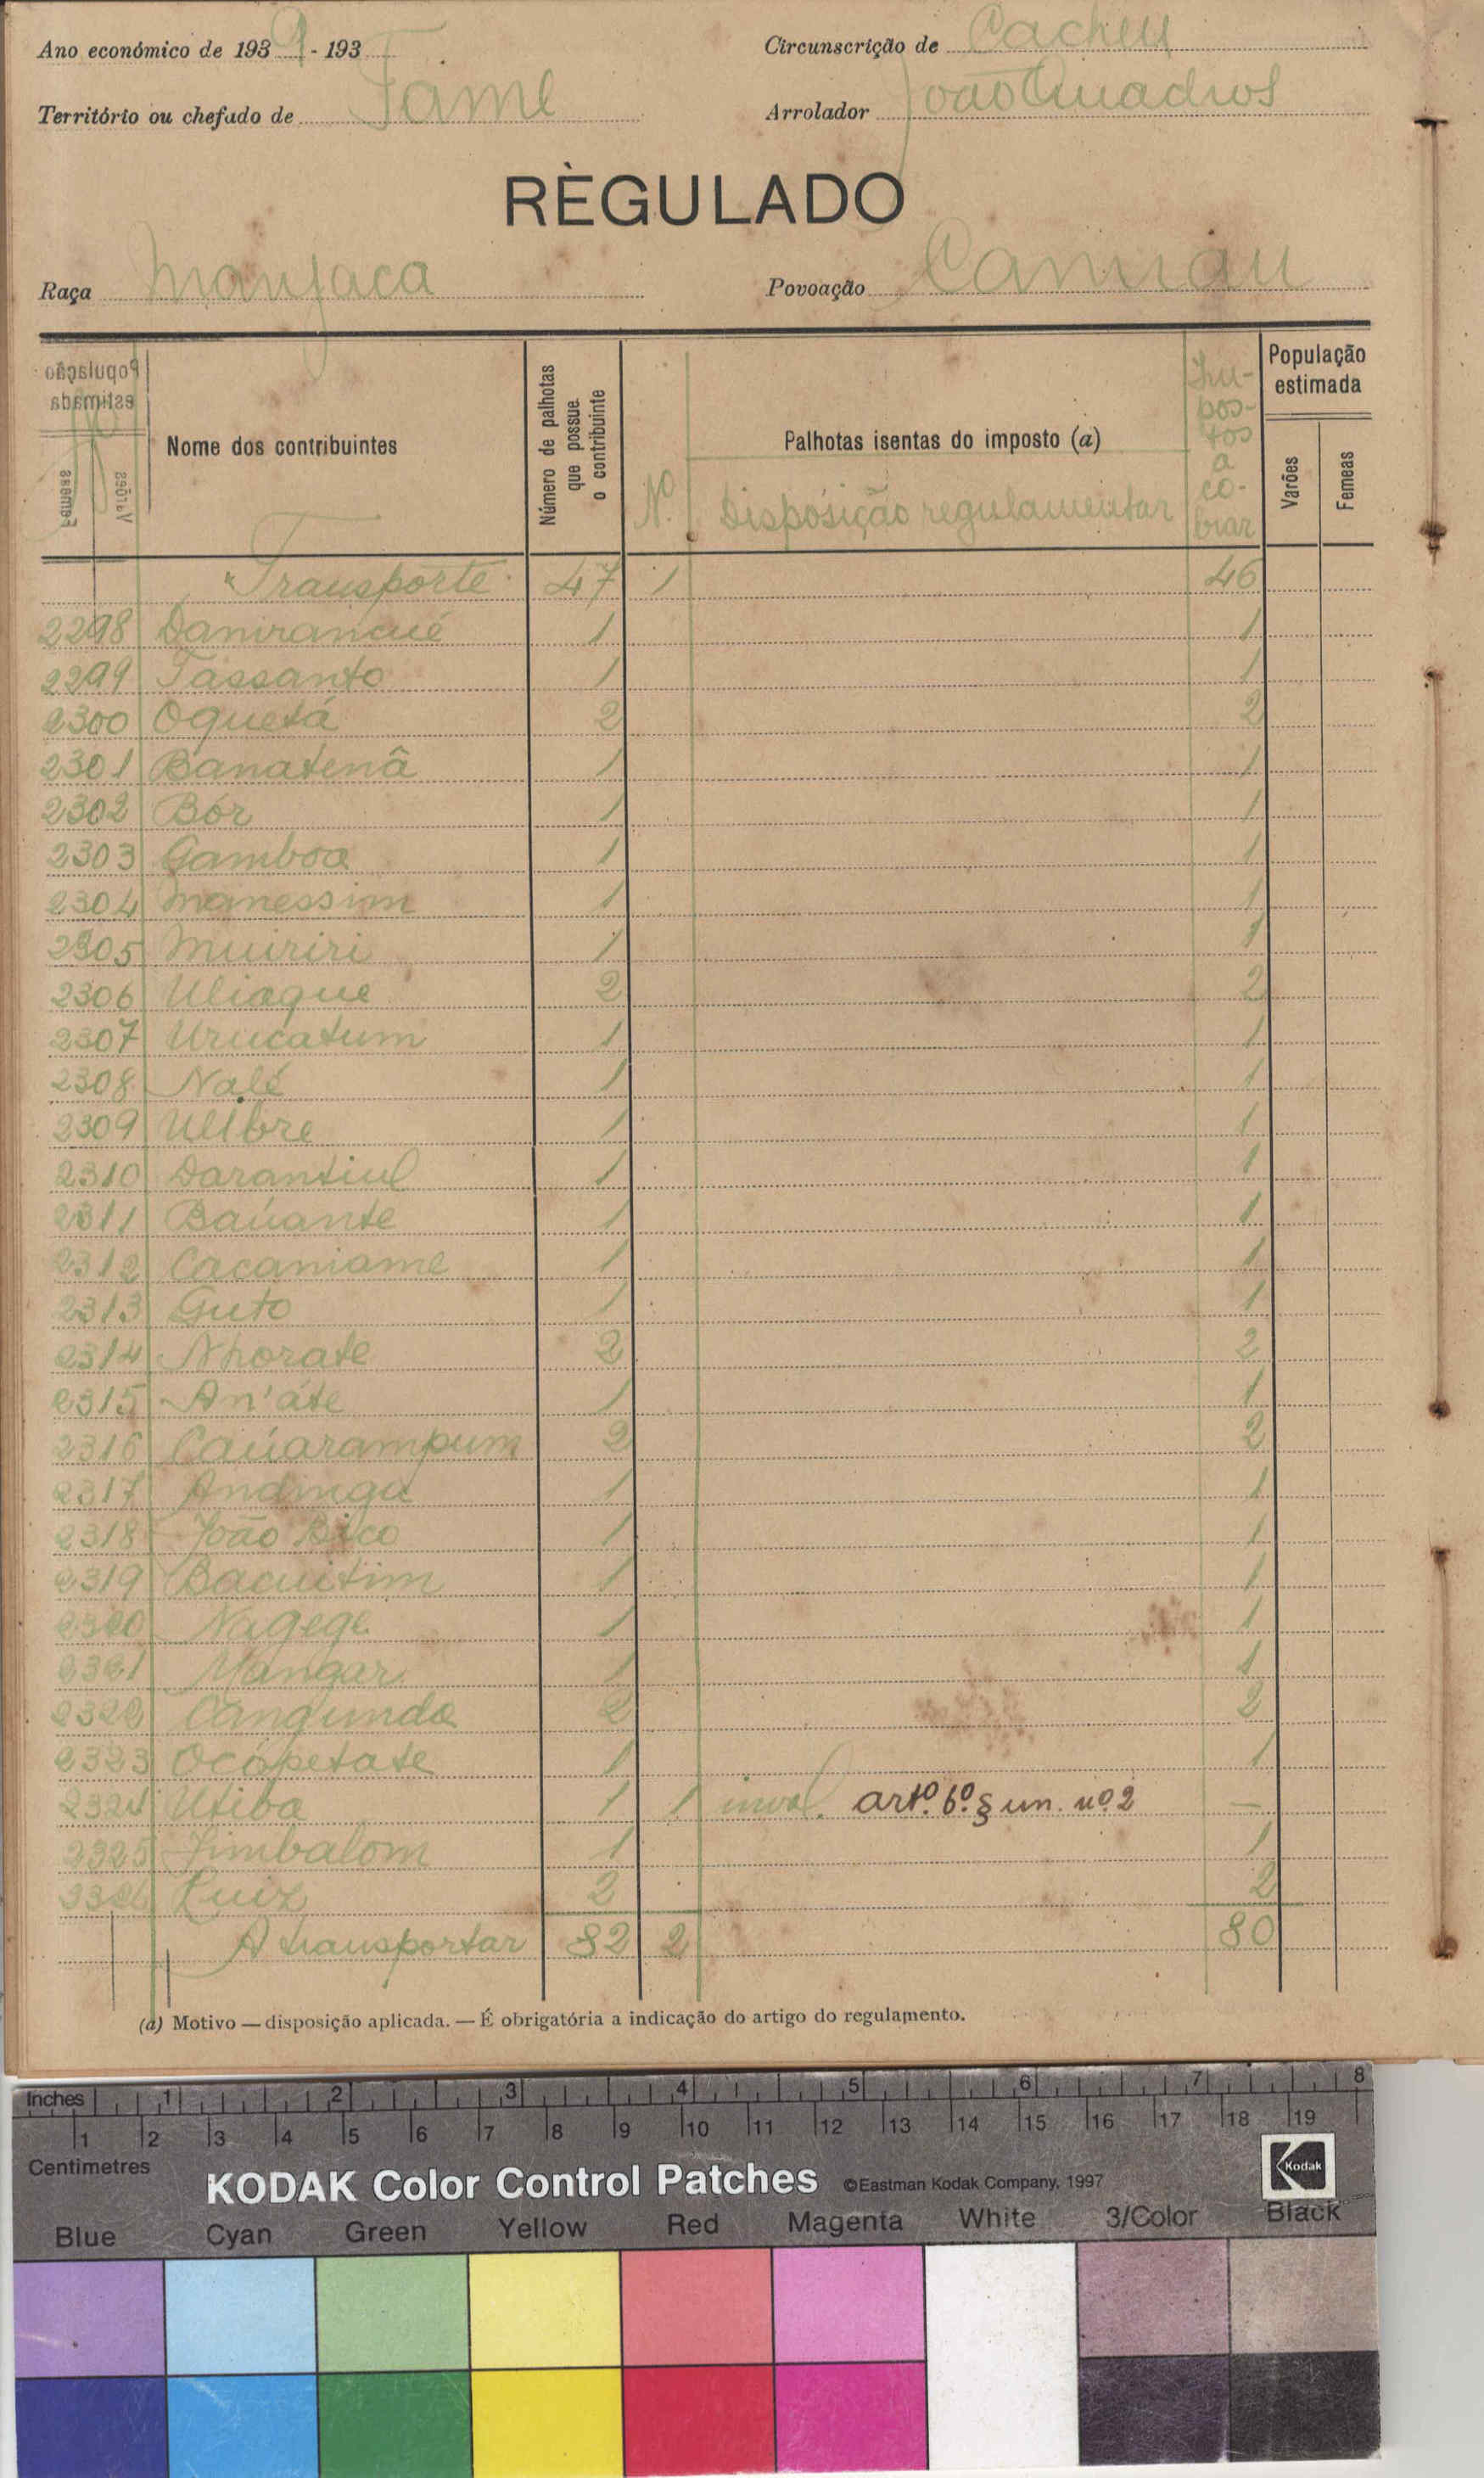 Ano económico de 1939 - 193
Circunscrição de Cacheu
Território ou chefado de Tame
Arrolador João Quadros
RÈGULADO
Raça Manjaca
Povoação Canirau
População estimada
Femeas
Varões
Nome dos contribuintes
Número de palhotas que possue o contribuinte
Palhotas isentas do imposto (a)
Nº.
Disposição regulamentar
Impostos a cobrar
População estimada
Varões
Femeas
Transporte 47 1 46
2298 Danirancué 1 1
2299 Tassanto 1 1
2300 Oquetá 2 2
2301 Banatenâ 1 1
2302 Bór 1 1
2303 Gamboa 1 1
2304 Manessim 1 1
2305 Muiriri 1 1
2306 Uliaque 2 2
2307 Urucatum 1 1
2308 Nalé 1 1
2309 Ulibre 1 1
2310 Darantiul 1 1
2311 Baúante 1 1
2312 Cacaniame 1 1
2313 Guto 1 1
2314 Nhorate 2 2
2315 An'áte 1 1
2316 Caúarampum 2 2
2317 Andinga 1 1
2318 João Bico 1 1
2319 Bacuitim 1 1
2320 Nagege 1 1
2321 Mangar 1 1
2322 Cangunda 2 2
2323 Ocópetate 1 1
2324 Utiba 1 1 inval. artº. 6º. § un. nº. 2 —
2325 Jimbalom 1 1
2326 Luiz 2 2
A transportar 82 2 80
(a) Motivo — disposição aplicada. — É obrigatória a indicação do artigo do regulamento.
Inches 1 2 3 4 5 6 7 8
1 2 3 4 5 6 7 8 9 10 11 12 13 14 15 16 17 18 19
Centimetres
KODAK Color Control Patches ©Eastman Kodak Company, 1997 Kodak
Blue Cyan Green Yellow Red Magenta White 3/Color Black